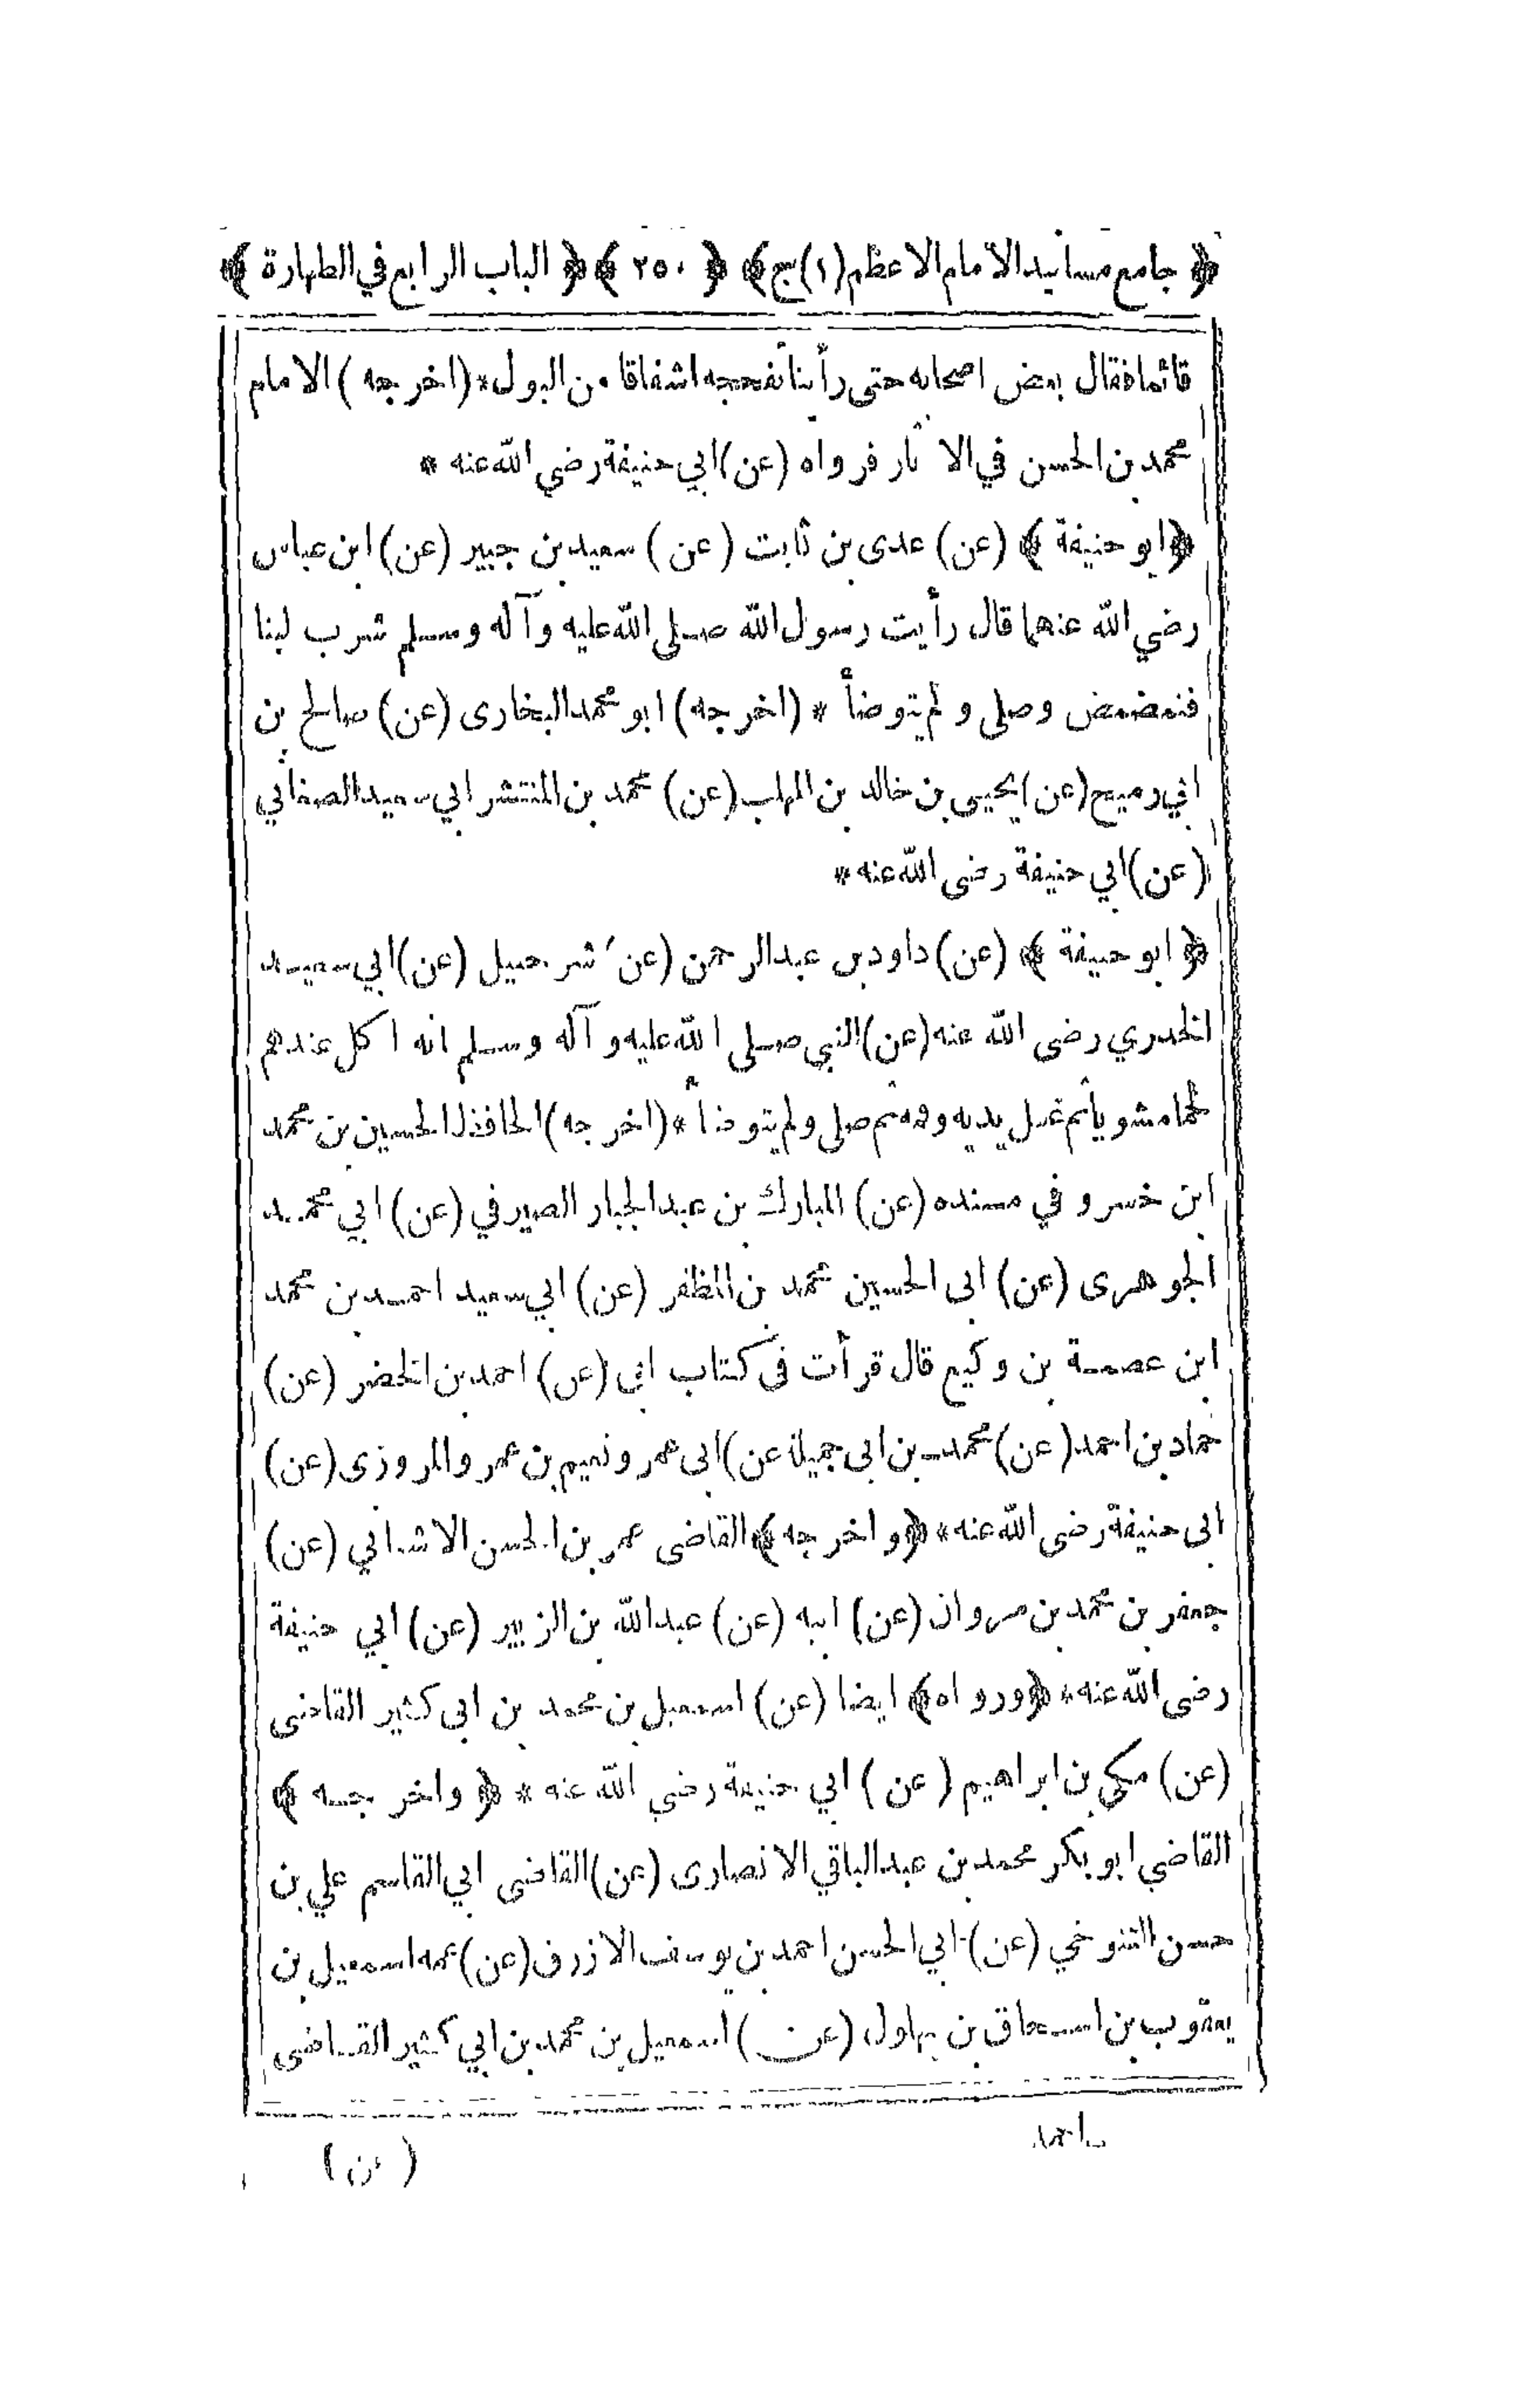 ﴿ جامع مسانيد الامام الاعظم (١) ج﴾ ﴿ ٢٥٠ ﴾ ﴿ الباب الرابع في الطهارة ﴾
قائما فقال بعض اصحابه حتى رأينا تفحجه اشفاقا من البول * (اخرجه) الامام
محمد بن الحسن في الا ثار فرواه (عن) ابي حنيفة رضي الله عنه *
﴿ابو حنيفة ﴾ (عن) عدى بن ثابت (عن) سعيد بن جبير (عن) ابن عباس
رضي الله عنهما قال رأيت رسول الله صلى الله عليه وآله وسلم شرب لبنا
فتمضمض وصلى ولم يتوضأ * (اخرجه) ابو محمد البخارى (عن) صالح بن
ابي رميح (عن) يحيى بن خالد بن المهلب (عن) محمد بن المنتشر ابي سعيد الصغاني
(عن) ابي حنيفة رضى الله عنه *
﴿ ابو حنيفة ﴾ (عن) داود بن عبد الرحمن (عن) شرحبيل (عن) ابي سعيد
الخدري رضى الله عنه (عن) النبي صلى الله عليه وآله وسلم انه اكل عندهم
لحما مشويا ثم غسل يديه وفمه ثم صلى ولم يتوضأ * (اخرجه) الحافظ الحسين بن محمد
ابن خسرو في مسنده (عن) المبارك بن عبد الجبار الصيرفي (عن) ابي محمد
الجوهرى (عن) ابى الحسين محمد بن المظفر (عن) ابي سعيد احمد بن محمد
ابن عصمة بن وكيع قال قرأت فى كتاب ابى (عن) احمد بن الخضر (عن)
حماد بن احمد (عن) محمد بن ابى جميلة (عن) ابى عمرو نعيم بن عمرو المروزى (عن)
ابى حنيفة رضى الله عنه * ﴿واخرجه﴾ القاضى عمر بن الحسن الاشناني (عن)
جعفر بن محمد بن مروان (عن) ابيه (عن) عبد الله بن الزبير (عن) ابي حنيفة
رضى الله عنه * ﴿ورواه﴾ ايضا (عن) اسمعيل بن محمد بن ابى كثير القاضى
(عن) مكي بن ابراهيم (عن) ابي حنيفة رضي الله عنه * ﴿ واخرجه ﴾
القاضي ابو بكر محمد بن عبد الباقي الانصارى (عن) القاضى ابي القاسم علي بن
حسن التنوخي (عن) ابي الحسن احمد بن يوسف الازرق (عن) عمه اسمعيل بن
يعقوب بن اسحاق بن بهلول (عن) اسمعيل بن محمد بن ابي كثير القاضى
(عن)